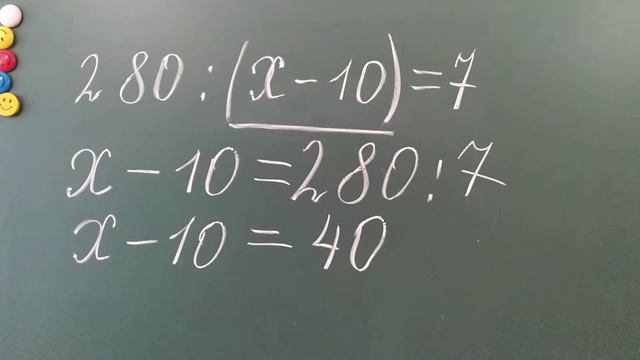 280 : (x - 10) = 7
x - 10 = 280 : 7
x - 10 = 40